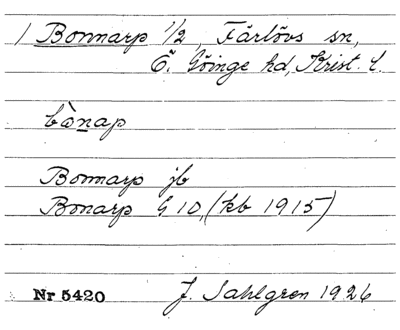 1 Bonnarp 1/2, Färlövs sn,
Ö. Göinge hd, Krist. l.
bònap
Bonnarp jb
Bonarp G 10, (kb 1915)
Nr 5420 J. Sahlgren 1926